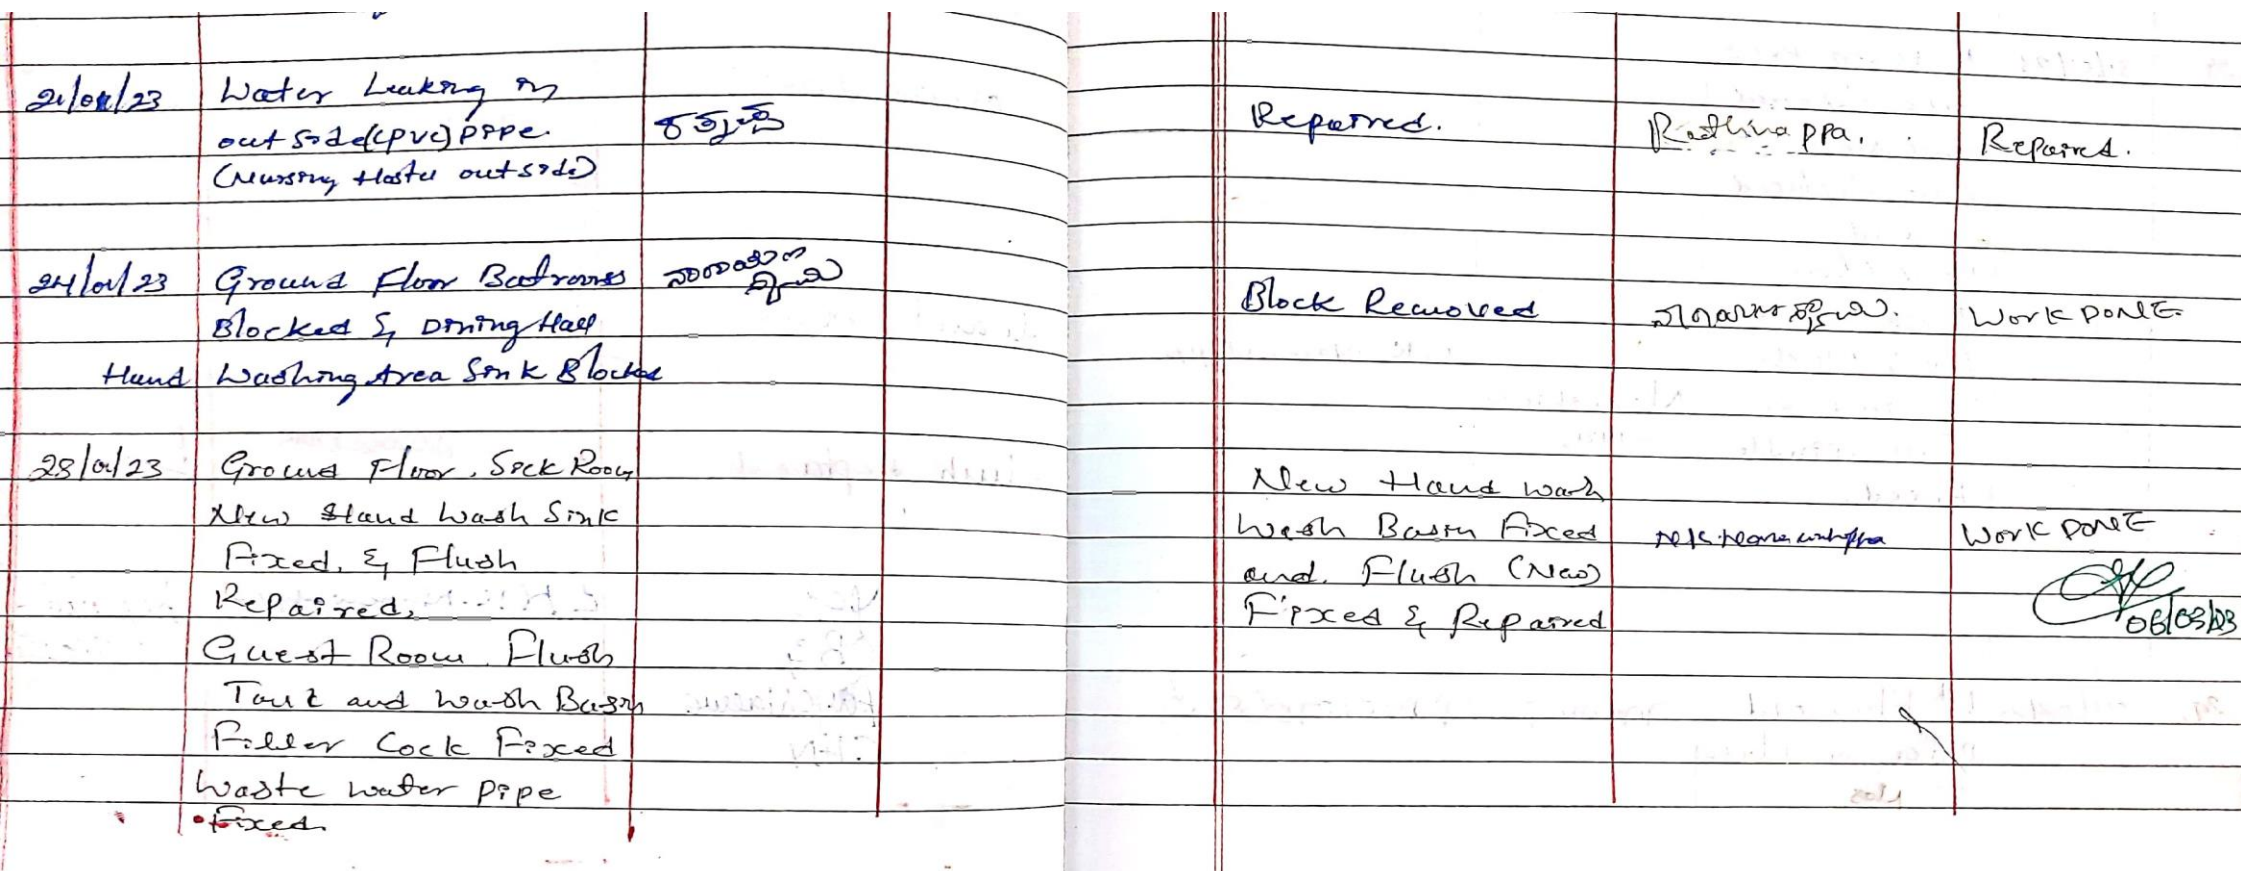 21/01/23 Water Leaking in
outside (CPVC) pipe.
(Nursing Hostel outside)
Repaired. Rathnappa. Repaired.
24/01/23 Ground Floor Bathrooms
Blocked & Dining Hall
Hand Washing Area Sink Blocked
Block Removed WORK DONE
28/01/23 Ground Floor, Sick Room
New Hand Wash Sink
Fixed, & Flush
Repaired,
Guest Room Flush
and Wash Basin
Filler Cock Fixed
Waste water pipe
Fixed
New Hand wash
Wash Basin Fixed WORK DONE
and Flush (New)
Fixed & Repaired
06/03/23